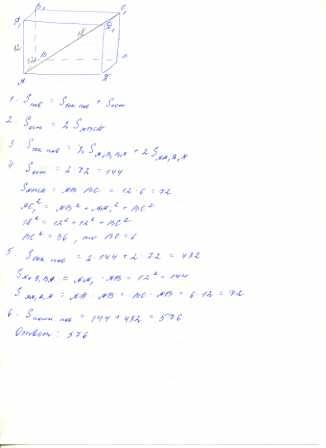 B₁ C₁
A₁ D₁
18
12
12 B C
A D
1. Sпов = Sбок пов + Sосн
2. Sосн = 2·SABCD
3. Sбок пов = 2·SA₁B₁BA + 2SAA₁D₁D
4. Sосн = 2·72 = 144
SABCD = AB·BC = 12·6 = 72
AC₁² = AB² + AA₁² + BC²
18² = 12² + 12² + BC²
BC² = 36, BC = 6
5. Sбок пов = 2·144 + 2·72 = 432
SAA₁B₁BA = AA₁·AB = 12² = 144
= 6·12 = 72
6. Sполн пов = 144 + 432 = 576
Ответ: 576